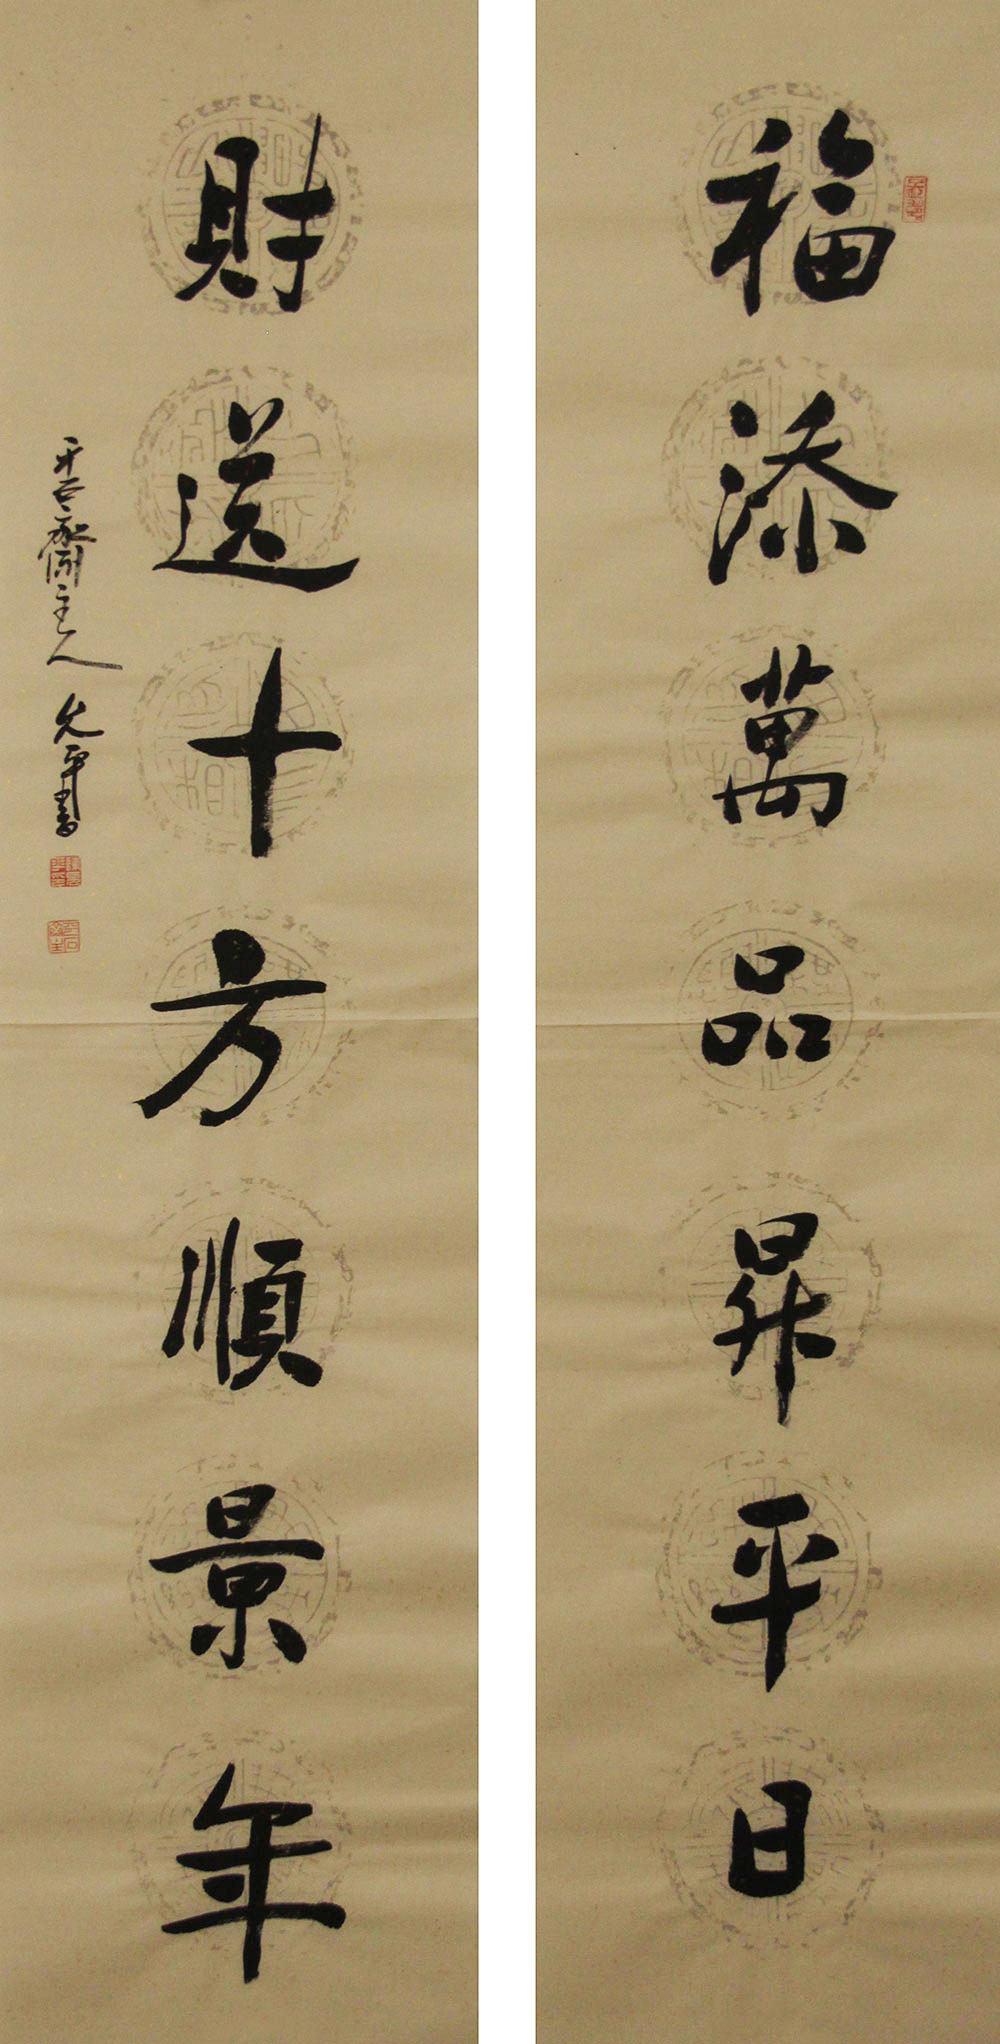 福添萬品昇平日
財送十方順景年
主人 允平書